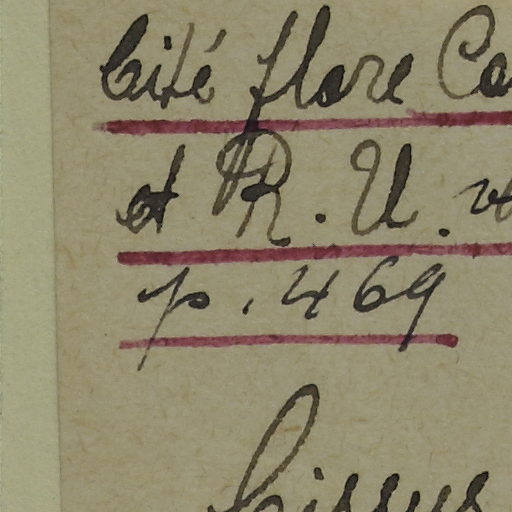 Cité flore Co
et R. U. v
p. 469
Cissus